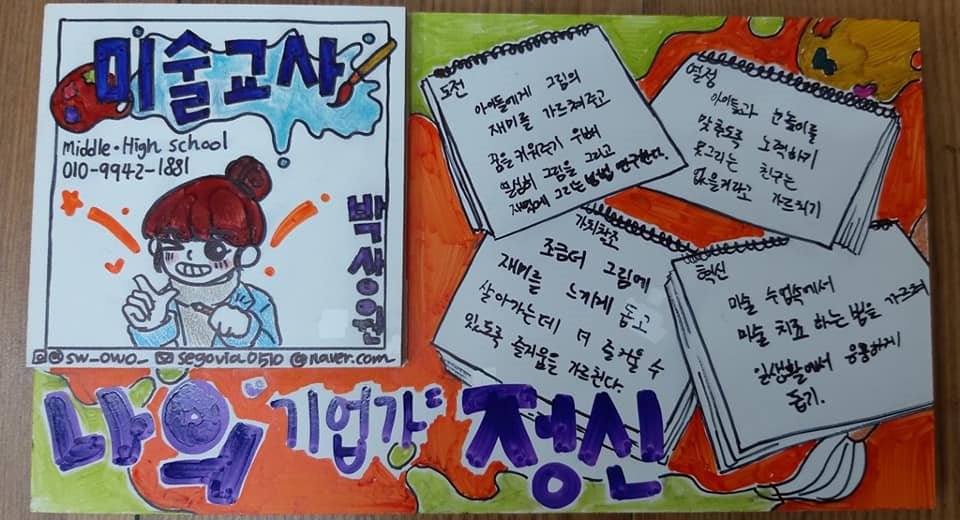 미술교사
Middle·High school
010-9942-1881
박상원
@sw_owo_ segovia0510@naver.com
도전
아이들에게 그림의
재미를 가르쳐주고
꿈을 키워주기 위해
열심히 그림을 그리고
그리는 방법 연구한다.
열정
아이들과 눈높이를
맞추도록 노력하기
못그리는 친구는
없을거라고 가르치기
가치창조
조금더 그림에
재미를 느끼게 돕고
살아가는데 더 즐거울 수
있도록 즐거움을 가르친다.
혁신
미술 수업속에서
미술 치료 하는 법을 가르쳐
일생활에서 응용하게
돕기.
나의 기업가 정신